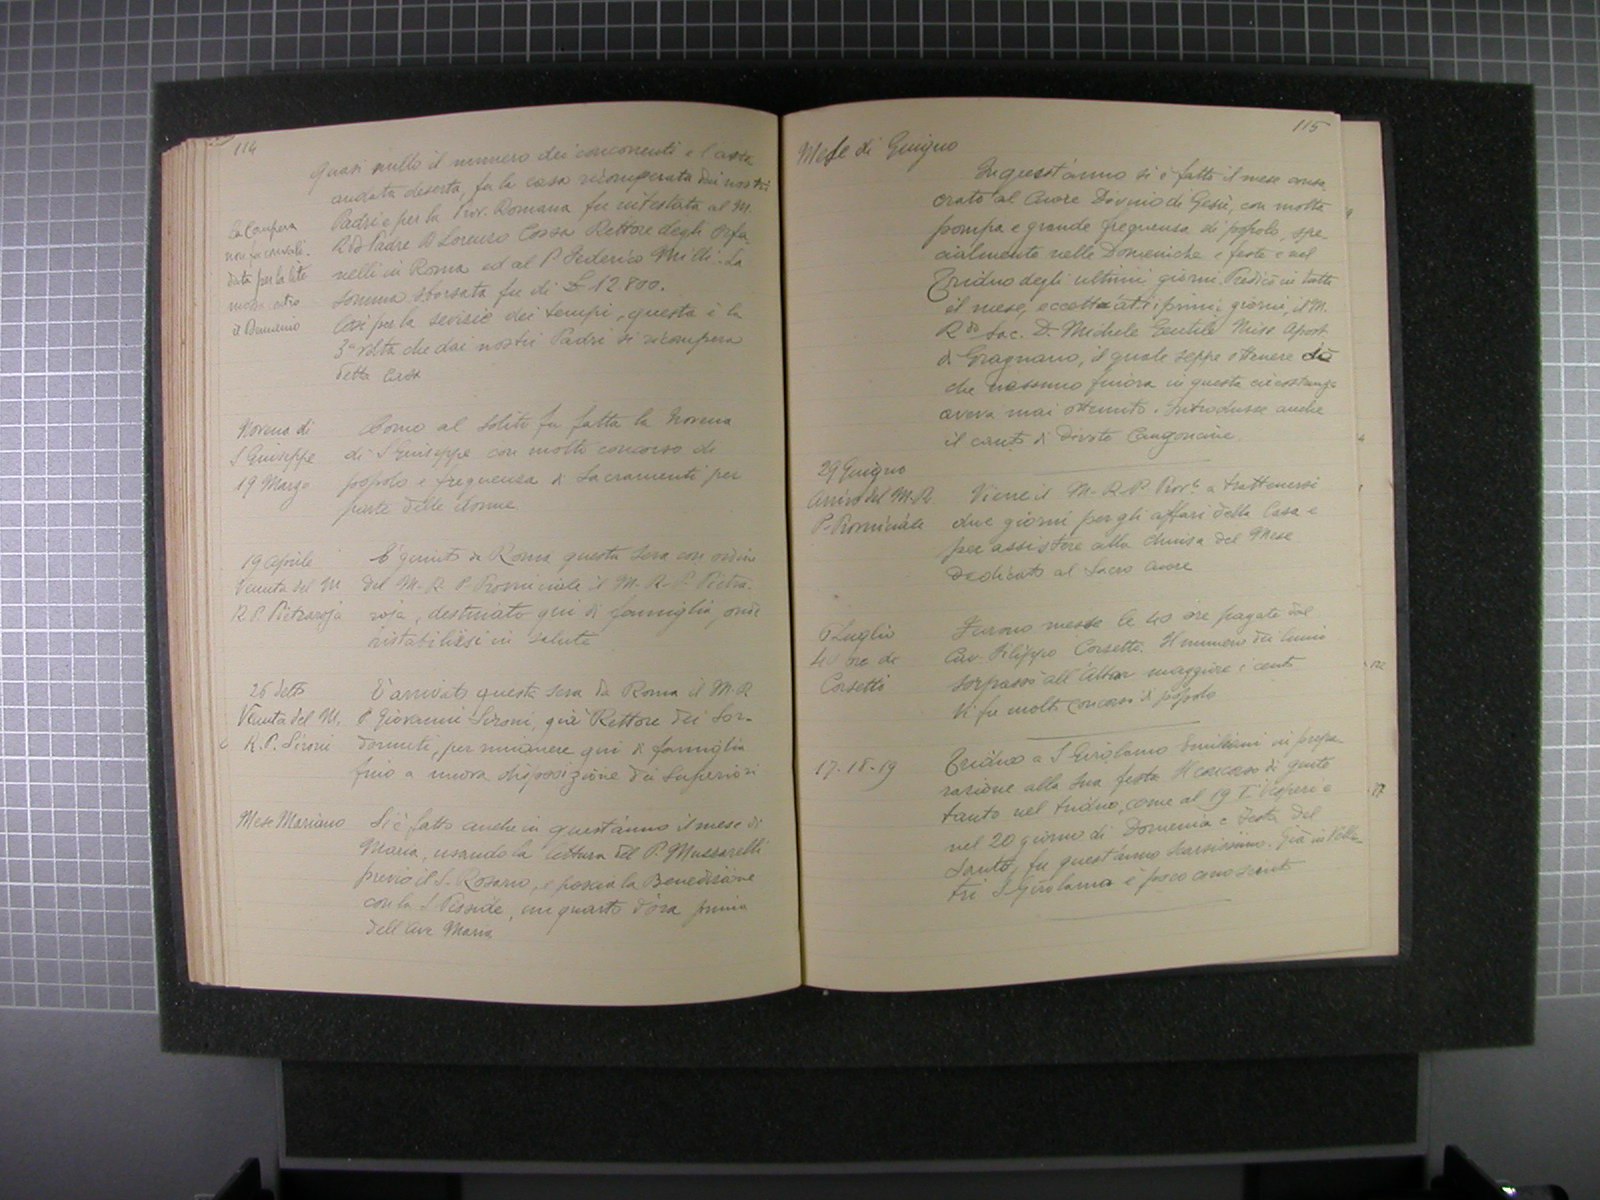 114
quasi nullo il numero dei concorrenti e l'asta
andata deserta, fu la casa ricomperata dai nostri
Padri e per la Prov. Romana fu intestata al M.
R.do Padre D. Lorenzo Cossa Rettore degli Orfa-
nelli in Roma ed al P. Federico Milli. La
somma sborsata fu di £ 12.800.
Così per la sevizie dei tempi, questa è la
3a volta che dai nostri Padri si ricompera
detta Casa
la Compera
non fu
data per la lite
mossa
il Demanio
Novena di
S Giuseppe
19 Marzo
Como al solito fu fatta la Novena
di S Giuseppe con molto concorso di
popolo e frequenza di Sacramenti per
parte delle donne.
19 Aprile
Venuta del M
R. P. Pietraroja
È venuto da Roma questa sera con ordine
del M. R. P. Provinciale il M. R. P. Pietra-
roja, destinato qui di famiglia, onde
ristabilirsi in salute
26 detto
Venuta del M.
R. P. Sironi
È arrivato questa sera da Roma il M. R
P. Giovanni Sironi, già Rettore dei Sor-
domuti, per rimanere qui di famiglia
fino a nuova disposizione dei Superiori
Mese Mariano
Si è fatto anche in quest'anno il mese di
Maria, usando la lettura del P. Muzzarelli
previo il S. Rosario, e poscia la Benedizione
con la S. Pisside, un quarto d'ora prima
dell'Ave Maria
115
Mese di Giugno
In quest'anno si è fatto il mese consa
crato al Cuore Divino di Gesù, con molta
pompa e grande frequenza di popolo, spe
cialmente nelle Domeniche e feste e nel
Triduo degli ultimi giorni. Predicò in tutto
il mese, eccettuati i primi giorni, il M.
R.do Sac. D. Michele Gentile Miss. Apost.
di Gragnano, il quale seppe ottenere ciò
che nessuno finora in questa circostanza
aveva mai ottenuto. Introdusse anche
il canto di divote Canzoncine.
29 Giugno
Arrivo del M. R.
P. Provinciale
Viene il M. R. P. Prov.le a trattenersi
due giorni per gli affari della Casa e
per assistere alla chiusa del Mese
dedicato al Sacro Cuore
6 Luglio
40 ore di
Corsetti
Furono messe le 40 ore pagate dal
Cav. Filippo Corsetti. Il numero dei lumi
sorpassò all'Altar maggiore i cento
Vi fu molto concorso di popolo
17-18-19
Triduo a S. Girolamo Emiliani in prepa-
razione alla sua festa. Il concorso di gente
tanto nel triduo, come al 19 I. Vesperi e
nel 20 giorno di Domenica e Festa del
Santo, fu quest'anno scarsissimo. Già in Velle-
tri S. Girolamo è poco conosciuto